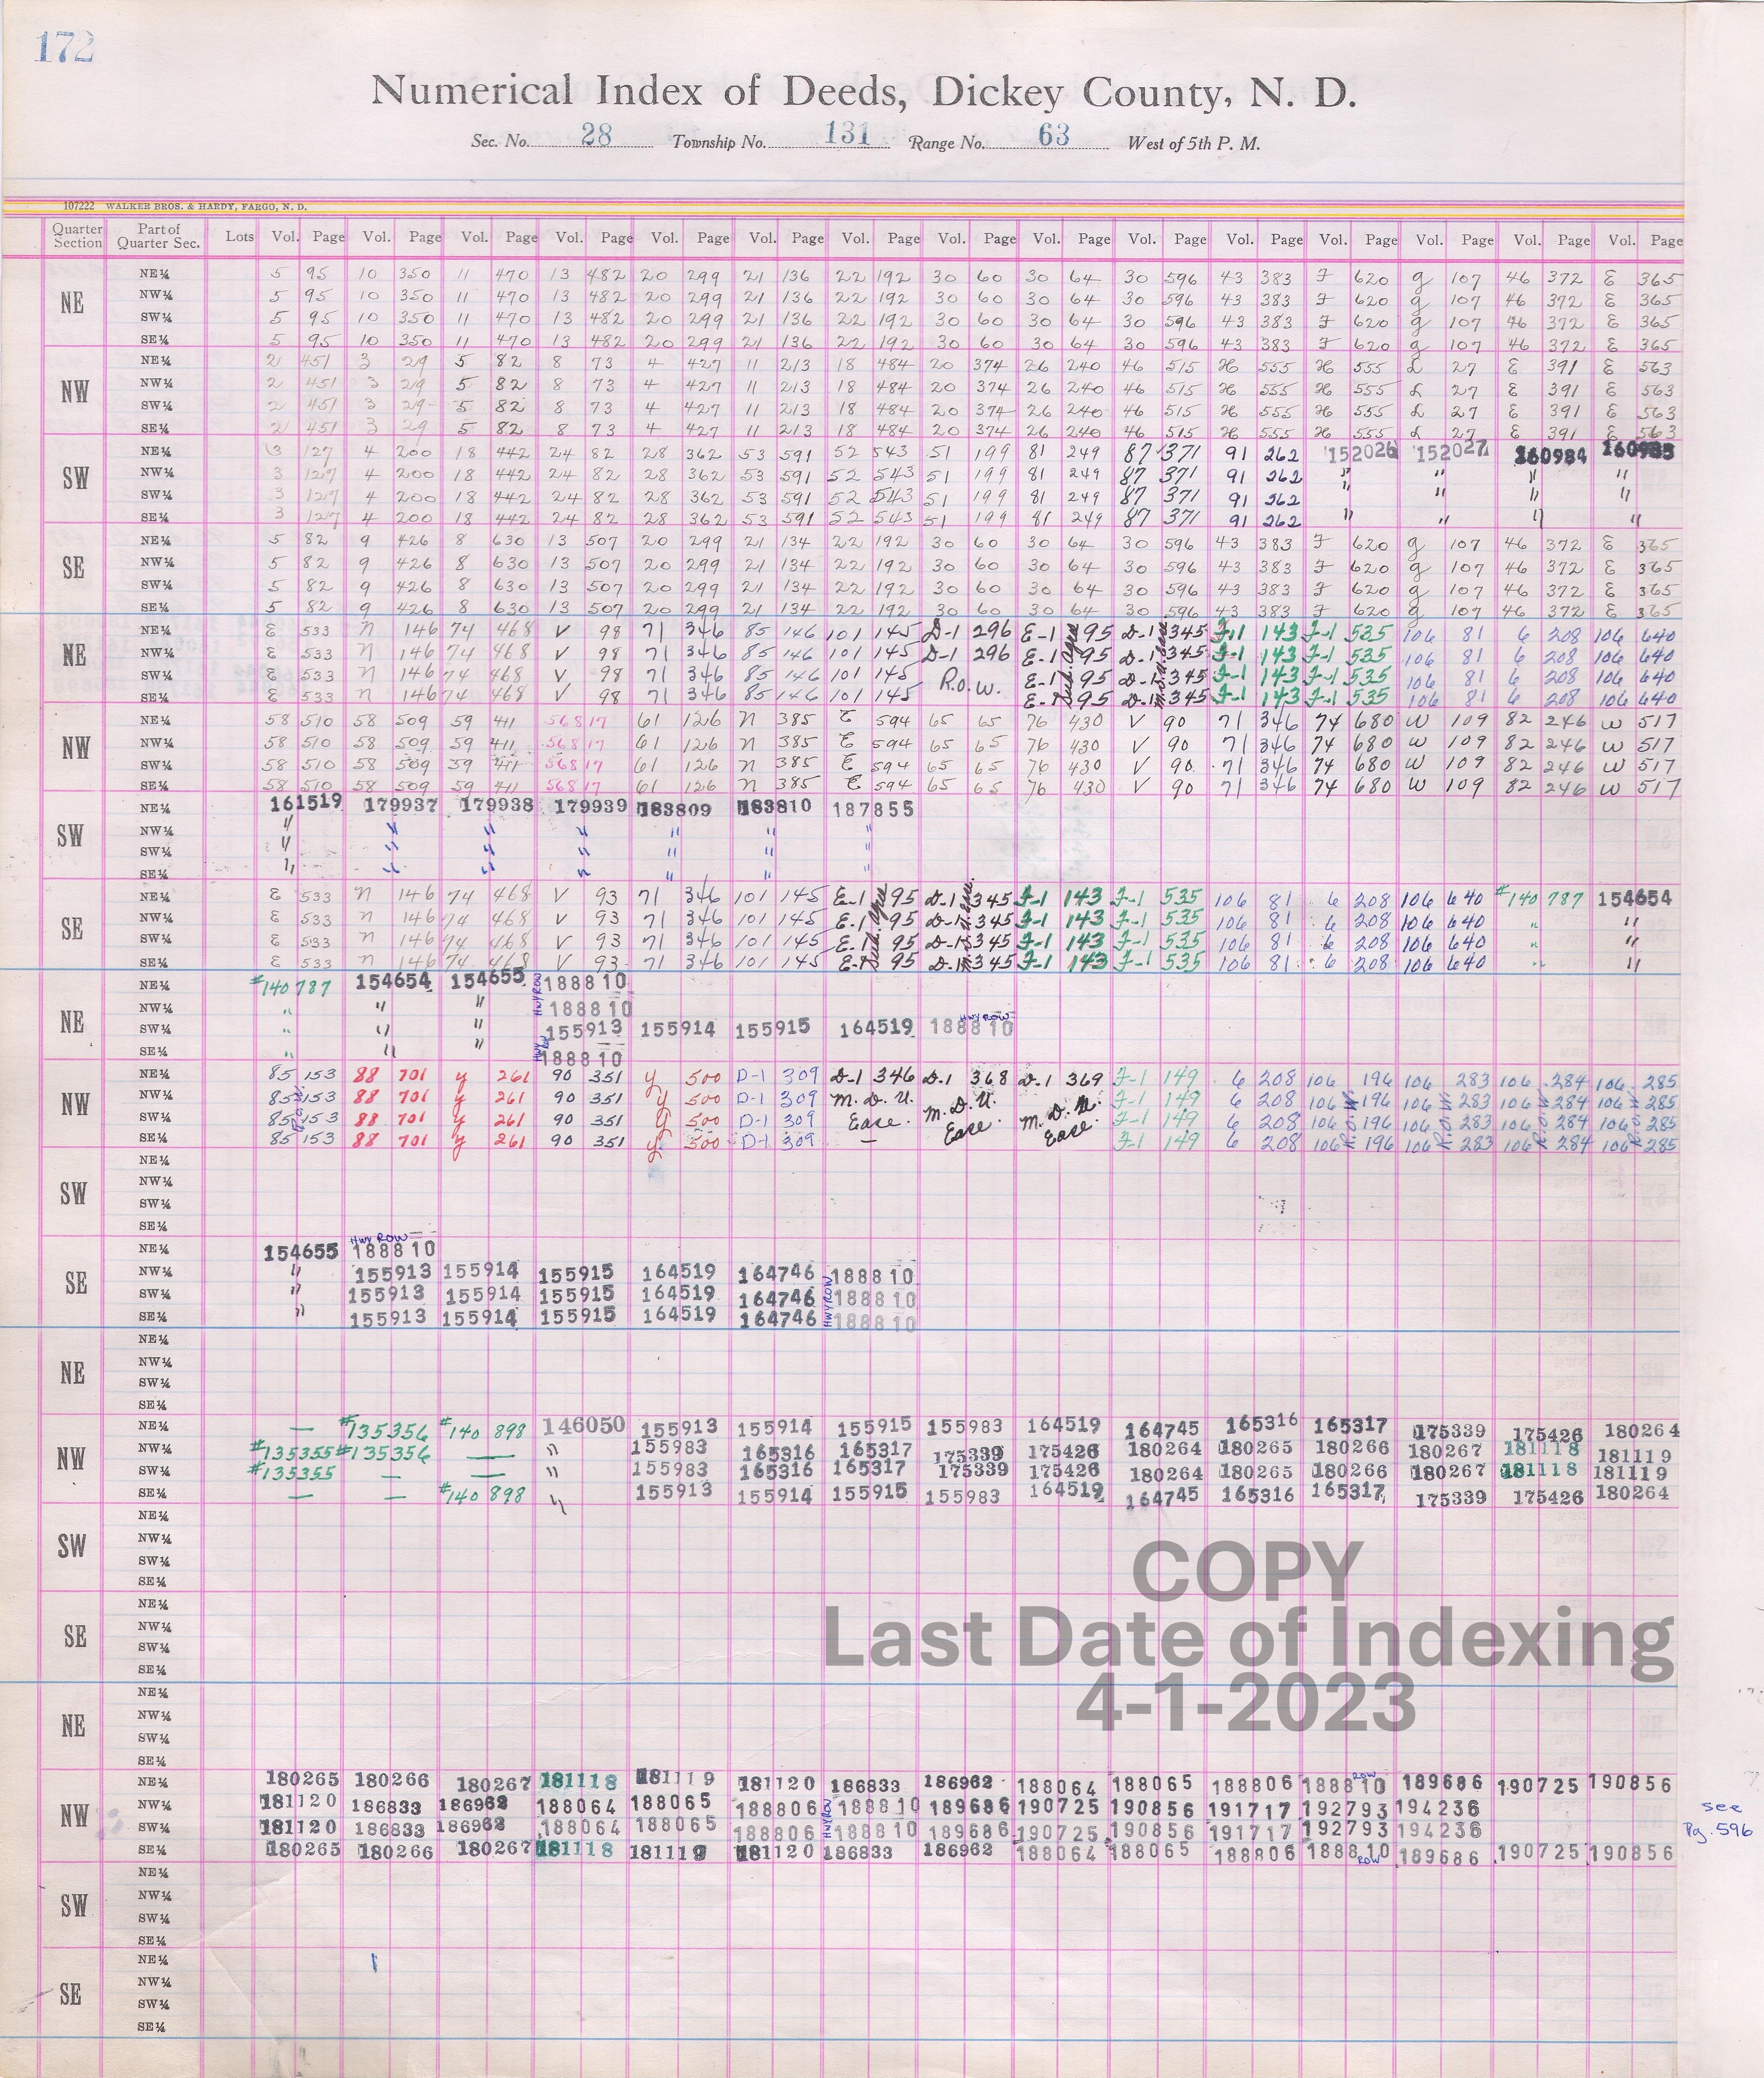 172
Numerical Index of Deeds, Dickey County, N. D.
Sec. No. 28 Township No. 131 Range No. 63 West of 5th P. M.
107222 WALKER BROS. & HARDY, FARGO, N. D.
Quarter Section Part of Quarter Sec. Lots Vol. Page Vol. Page Vol. Page Vol. Page Vol. Page Vol. Page Vol. Page Vol. Page Vol. Page Vol. Page Vol. Page Vol. Page Vol. Page Vol. Page Vol. Page
NE NE¼ 5 95 10 350 11 470 13 482 20 299 21 136 22 192 30 60 30 64 30 596 43 383 F 620 g 107 46 372 E 365
NW¼ 5 95 10 350 11 470 13 482 20 299 21 136 22 192 30 60 30 64 30 596 43 383 F 620 g 107 46 372 E 365
SW¼ 5 95 10 350 11 470 13 482 20 299 21 136 22 192 30 60 30 64 30 596 43 383 F 620 g 107 46 372 E 365
SE¼ 5 95 10 350 11 470 13 482 20 299 21 136 22 192 30 60 30 64 30 596 43 383 F 620 g 107 46 372 E 365
NW NE¼ 2 451 3 29 5 82 8 73 4 427 11 213 18 484 20 374 26 240 46 515 H 555 H 555 L 27 E 391 E 563
NW¼ 2 451 3 29 5 82 8 73 4 427 11 213 18 484 20 374 26 240 46 515 H 555 H 555 L 27 E 391 E 563
SW¼ 2 451 3 29 5 82 8 73 4 427 11 213 18 484 20 374 26 240 46 515 H 555 H 555 L 27 E 391 E 563
SE¼ 2 451 3 29 5 82 8 73 4 427 11 213 18 484 20 374 26 240 46 515 H 555 H 555 L 27 E 391 E 563
SW NE¼ 3 127 4 200 18 442 24 82 28 362 53 591 52 543 51 199 81 249 87 371 91 262 152026 152027 160984 160985
NW¼ 3 127 4 200 18 442 24 82 28 362 53 591 52 543 51 199 81 249 87 371 91 262 " " " "
SW¼ 3 127 4 200 18 442 24 82 28 362 53 591 52 543 51 199 81 249 87 371 91 262 " " " "
SE¼ 3 127 4 200 18 442 24 82 28 362 53 591 52 543 51 199 81 249 87 371 91 262 " " " "
SE NE¼ 5 82 9 426 8 630 13 507 20 299 21 134 22 192 30 60 30 64 30 596 43 383 F 620 g 107 46 372 E 365
NW¼ 5 82 9 426 8 630 13 507 20 299 21 134 22 192 30 60 30 64 30 596 43 383 F 620 g 107 46 372 E 365
SW¼ 5 82 9 426 8 630 13 507 20 299 21 134 22 192 30 60 30 64 30 596 43 383 F 620 g 107 46 372 E 365
SE¼ 5 82 9 426 8 630 13 507 20 299 21 134 22 192 30 60 30 64 30 596 43 383 F 620 g 107 46 372 E 365
NE NE¼ E 533 N 146 74 468 V 98 71 346 85 146 101 145 D-1 296 E-1 95 D-1 345 F-1 143 F-1 535 106 81 6 208 106 640
NW¼ E 533 N 146 74 468 V 98 71 346 85 146 101 145 D-1 296 E-1 95 D-1 345 F-1 143 F-1 535 106 81 6 208 106 640
SW¼ E 533 N 146 74 468 V 98 71 346 85 146 101 145 R.O.W. E-1 95 D-1 345 F-1 143 F-1 535 106 81 6 208 106 640
SE¼ E 533 N 146 74 468 V 98 71 346 85 146 101 145 E-1 95 D-1 345 F-1 143 F-1 535 106 81 6 208 106 640
NW NE¼ 58 510 58 509 59 411 56817 61 126 N 385 E 594 65 65 76 430 V 90 71 346 74 680 W 109 82 246 W 517
NW¼ 58 510 58 509 59 411 56817 61 126 N 385 E 594 65 65 76 430 V 90 71 346 74 680 W 109 82 246 W 517
SW¼ 58 510 58 509 59 411 56817 61 126 N 385 E 594 65 65 76 430 V 90 71 346 74 680 W 109 82 246 W 517
SE¼ 58 510 58 509 59 411 56817 61 126 N 385 E 594 65 65 76 430 V 90 71 346 74 680 W 109 82 246 W 517
SW NE¼ 161519 179937 179938 179939 183809 183810 187855
NW¼ " " " " " " "
SW¼ " " " " " " "
SE¼ " " " " " " "
SE NE¼ E 533 N 146 74 468 V 93 71 346 101 145 E-1 95 D-1 345 F-1 143 F-1 535 106 81 6 208 106 640 #140787 154654
NW¼ E 533 N 146 74 468 V 93 71 346 101 145 E-1 95 D-1 345 F-1 143 F-1 535 106 81 6 208 106 640 " "
SW¼ E 533 N 146 74 468 V 93 71 346 101 145 E-1 95 D-1 345 F-1 143 F-1 535 106 81 6 208 106 640 " "
SE¼ E 533 N 146 74 468 V 93 71 346 101 145 E-1 95 D-1 345 F-1 143 F-1 535 106 81 6 208 106 640 " "
NE NE¼ #140787 154654 154655 HWY ROW 188810
NW¼ " " " 188810
SW¼ " " " 155913 155914 155915 164519 HWY ROW 188810
SE¼ " " HWY 188810
NW NE¼ 85 153 88 701 y 261 90 351 y 500 D-1 309 D-1 346 D-1 368 D-1 369 F-1 149 6 208 106 196 106 283 106 284 106 285
NW¼ 85 153 88 701 y 261 90 351 y 500 D-1 309 M.D.U. M.D.U. M.D.U. F-1 149 6 208 106 196 106 283 106 284 106 285
SW¼ 85 153 88 701 y 261 90 351 y 500 D-1 309 Ease. Ease. Ease. F-1 149 6 208 106 196 106 283 106 284 106 285
SE¼ 85 153 88 701 y 261 90 351 y 500 D-1 309 — F-1 149 6 208 106 196 106 283 106 284 106 285
SW NE¼
NW¼
SW¼
SE¼
SE NE¼ 154655 HWY ROW 188810
NW¼ " 155913 155914 155915 164519 164746 188810
SW¼ " 155913 155914 155915 164519 164746 HWY ROW 188810
SE¼ " 155913 155914 155915 164519 164746 188810
NE NE¼
NW¼
SW¼
SE¼
NW NE¼ — #135356 #140898 146050 155913 155914 155915 155983 164519 164745 165316 165317 175339 175426 180264
NW¼ #135355 #135356 — " 155983 165316 165317 175339 175426 180264 180265 180266 180267 181118 181119
SW¼ #135355 — — " 155983 165316 165317 175339 175426 180264 180265 180266 180267 181118 181119
SE¼ — — #140898 " 155913 155914 155915 155983 164519 164745 165316 165317 175339 175426 180264
SW NE¼
NW¼
SW¼
SE¼
COPY
SE NE¼
NW¼
SW¼
SE¼
Last Date of Indexing
4-1-2023
NE NE¼
NW¼
SW¼
SE¼
NW NE¼ 180265 180266 180267 181118 181119 181120 186833 186962 188064 188065 188806 188810 ROW 189686 190725 190856
NW¼ 181120 186833 186962 188064 188065 188806 HWY ROW 188810 189686 190725 190856 191717 192793 194236 see
SW¼ 181120 186833 186962 188064 188065 188806 188810 189686 190725 190856 191717 192793 194236 Pg. 596
SE¼ 180265 180266 180267 181118 181119 181120 186833 186962 188064 188065 188806 188810 ROW 189686 190725 190856
SW NE¼
NW¼
SW¼
SE¼
SE NE¼
NW¼
SW¼
SE¼